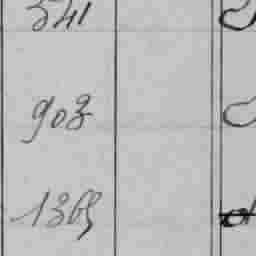 541
903
1365